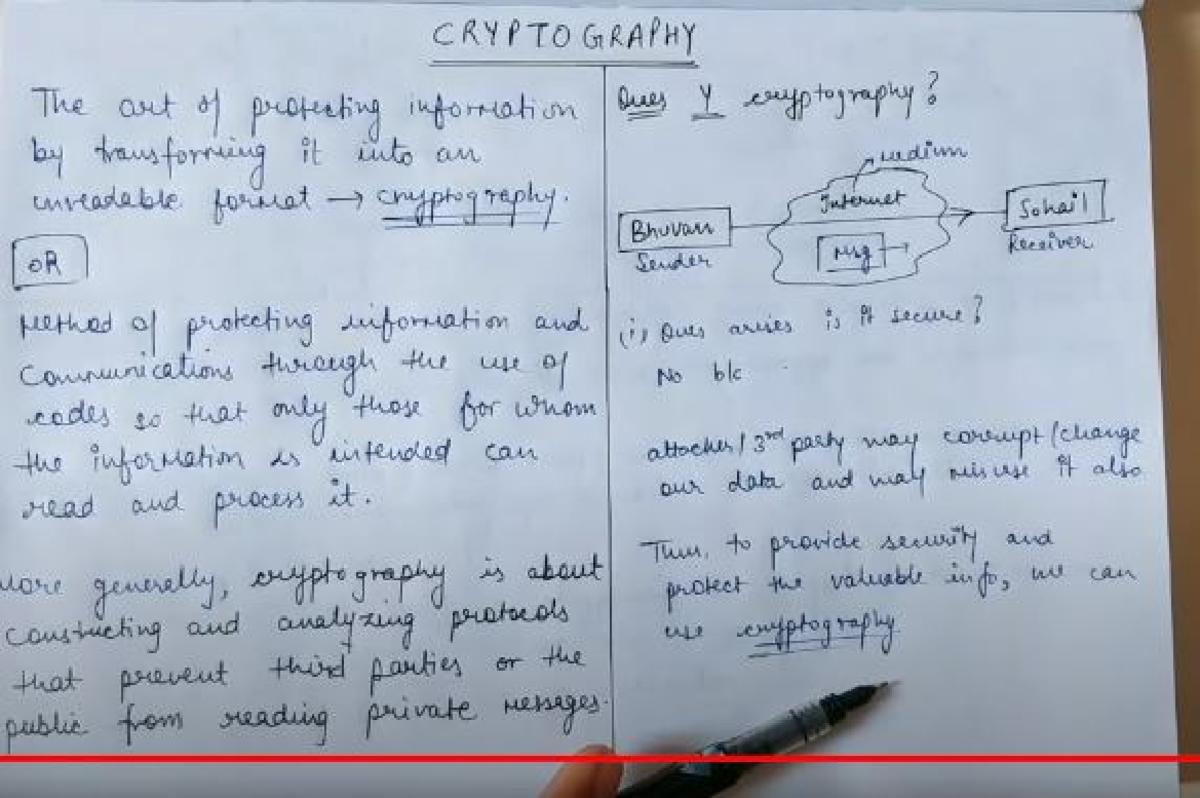 CRYPTOGRAPHY
The art of protecting information
by transforming it into an
unreadable format → cryptography.
OR
Method of protecting information and
Communications through the use of
codes so that only those for whom
the information is intended can
read and process it.
More generally, cryptography is about
constructing and analyzing protocols
that prevent third parties or the
public from reading private messages.
Ques Y cryptography?
medium
Internet
Bhuvan
Sender
msg
Sohail
Receiver
(i) Ques arises is it secure?
No b/c
attacker/3rd party may corrupt/change
our data and may misuse it also
Thus, to provide security and
protect the valuable info, we can
use cryptography